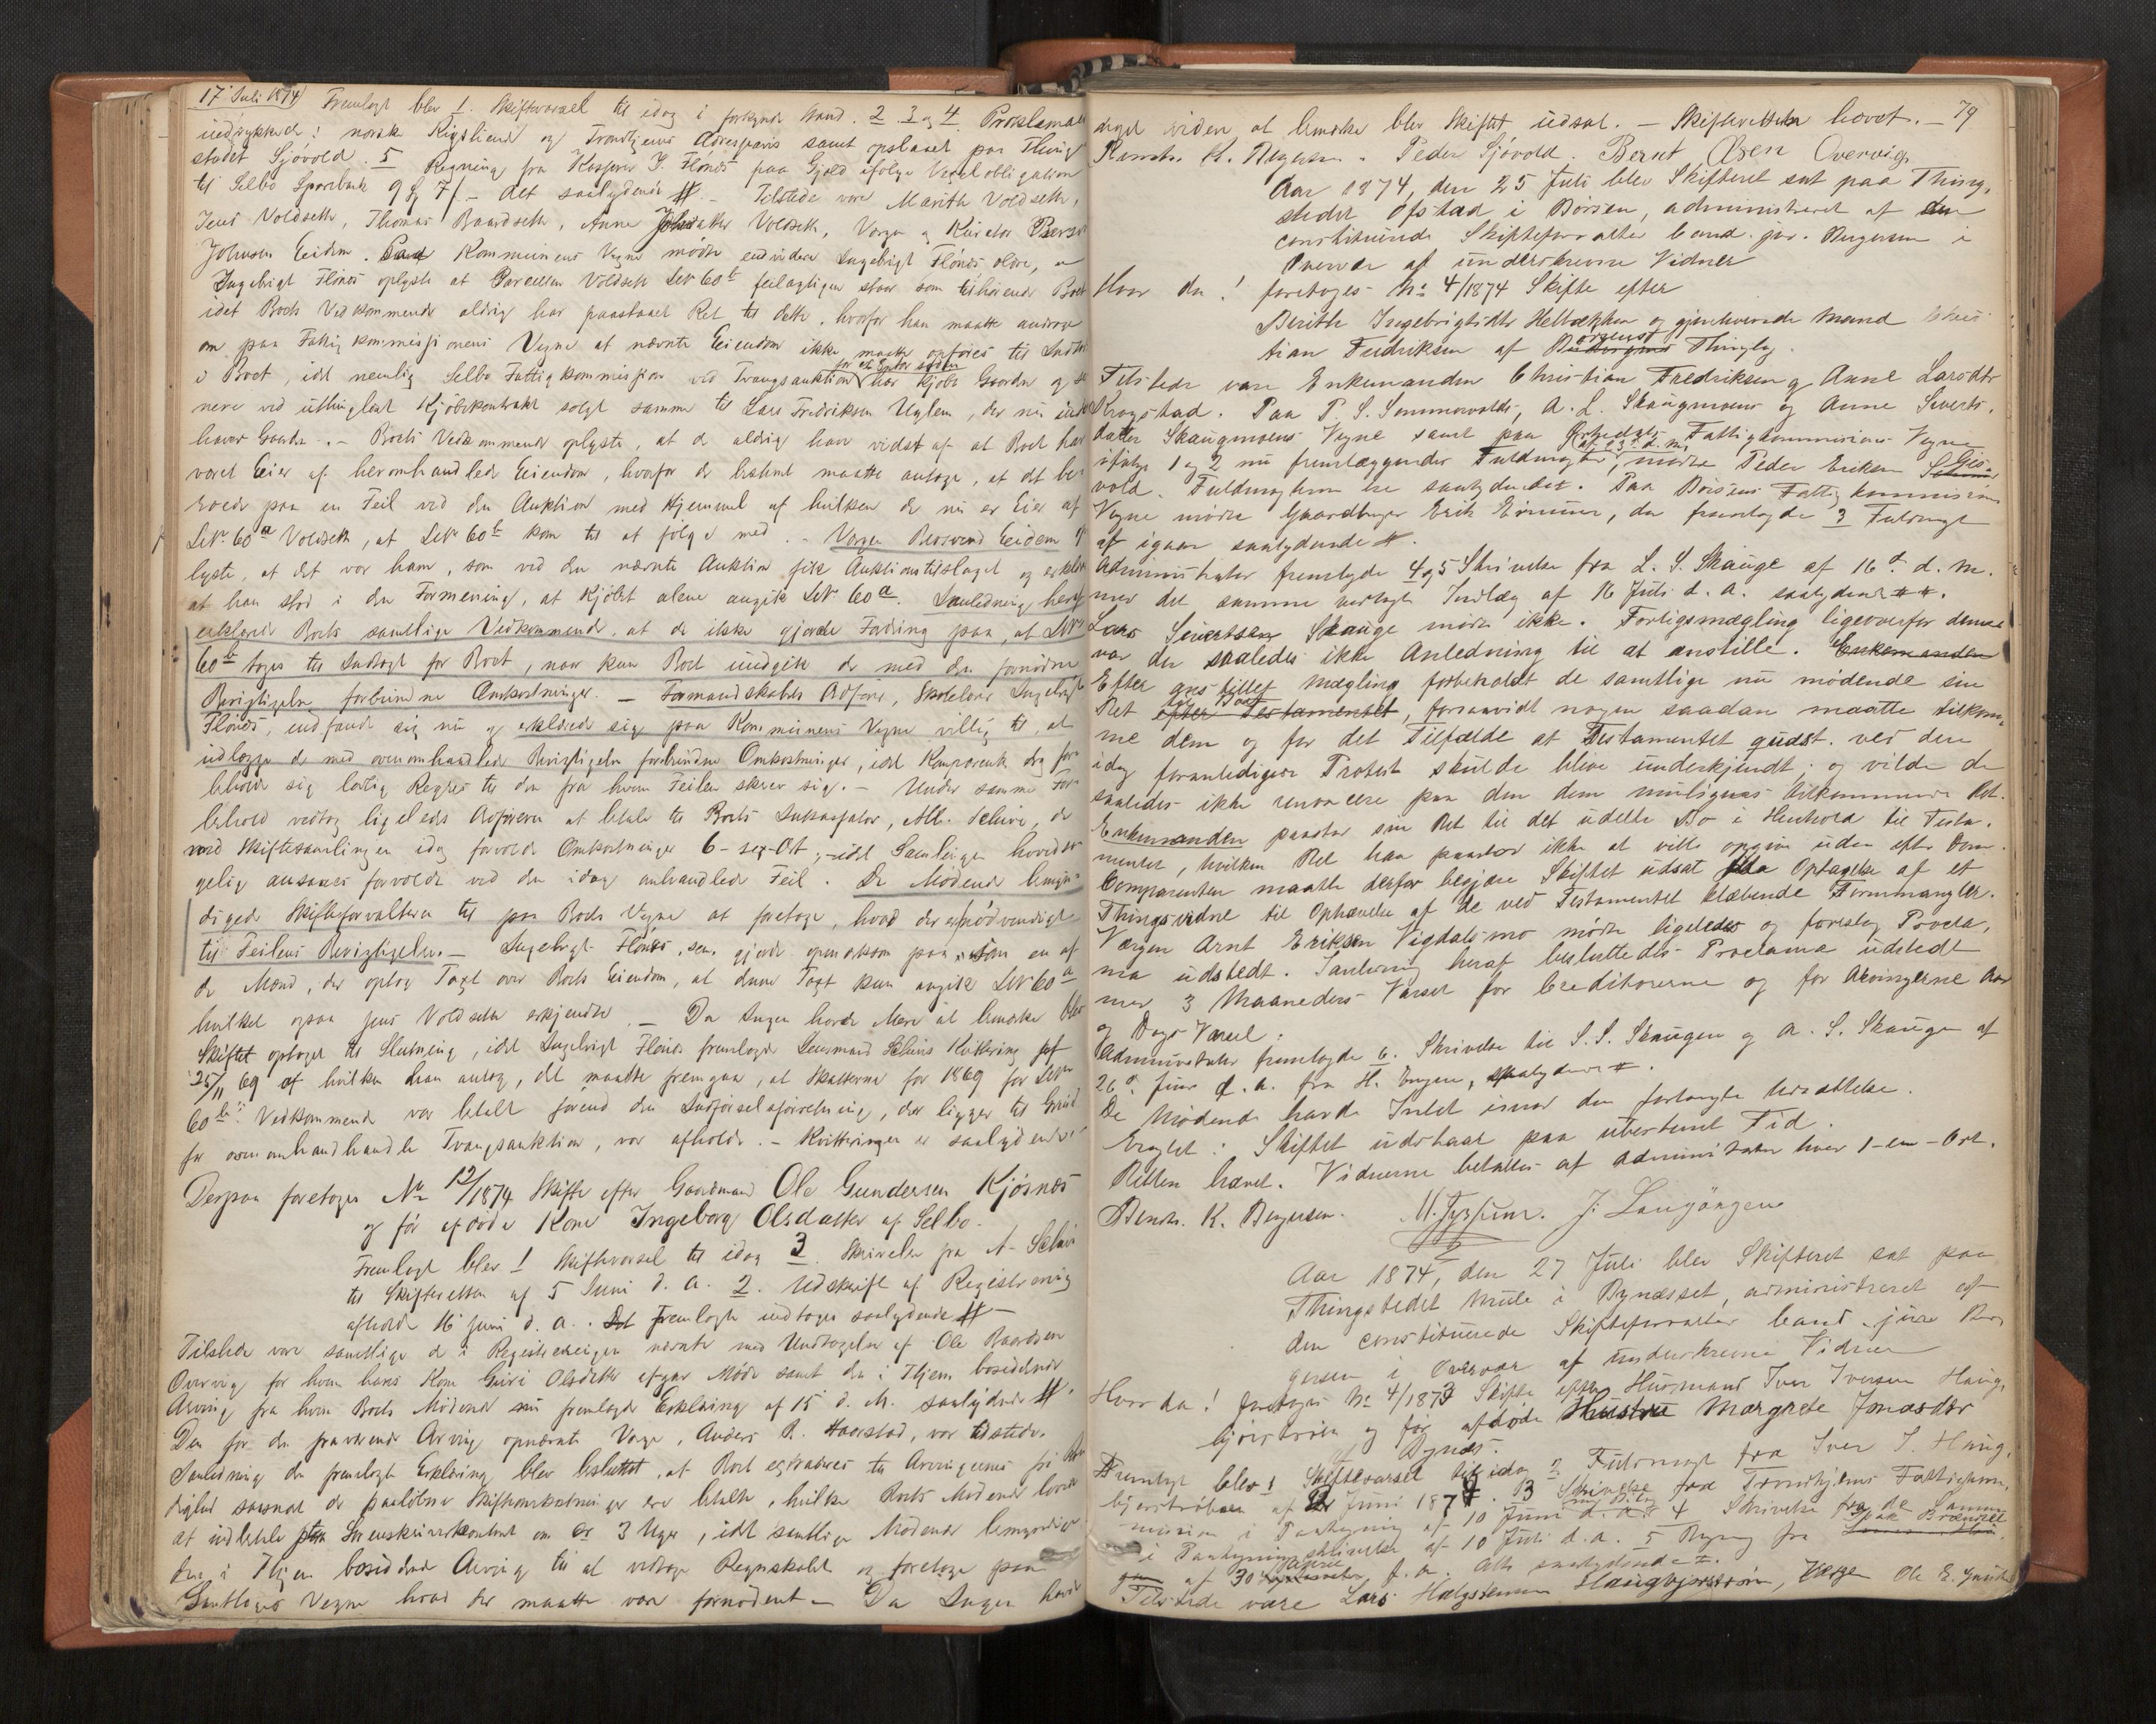 17 Juli 1874) Fremlagt blev 1. Skiftevarsel til idag i forkyndt Stand. 2. 3 og 4. Proklama
indrykket i norsk Rigstidende og Trondhjems Adresseavis samt opslaaet paa Thing
stedet Sjøvold. 5 Regning fra Kasserer I. Flönes paa Gjæld ifølge Vexelobligation
til Selbo Sparebank 9 ß 7/- Alt saalydende #. - Tilstede vare Marith Voldseth,
Jens Voldseth, Thomas Baardseth, Anne Johnsdatter Voldseth, Verge og Kurator
Johnsen Eidem. Paa Kommunens Vegne mødte endvidere Ingebrigt Flönes ældre,
Ingebrigt Flönes oplyste at Parcellen Voldseth LNo 60b feilagtigen staar som tilhörende Boet
idet Boets Vedkommende aldrig har paastaaet Ret til dette, hvorfor han maatte andrage
om paa Fattigkommissionens Vegne at nævnte Eiendom ikke maatte opføres til Indtægt
i Boet, idet nemlig Selbo Fattigkommission ved Tvangsauktion for 12 Aar siden har kjøbt Gaarden og se
nere ved uthinglæst Kjøbekontrakt solgt samme til Lars Fredriksen Uglem, der nu inde
haver Gaarden. - Boets Vedkommende oplyste, at de aldrig have vidst af at Boet har
været Eier af heromhandlede Eiendom, hvorfor de bestemt maatte antage, at det be
roede paa en Feil ved den Auktion med Hjemmel af hvilken de nu er Eier af
LNr. 60a Voldseth, at LNr 60b kom til at følge med. - Vergen Eidem op
lyste, at det var ham, som ved den nævnte Auktion fik Auktionstilslaget og erklærede
at han stod i den Formening, at Kjøbet alene angik LNr 60a. I Anledning heraf
erklærede Boets samtlige Vedkommende, at de ikke gjorde Fordring paa, at LNr
60b toges til Indtægt for Boet, naar kun Boet undgik de med den fornødne
Berigtigelse forbundne Omkostninger. - Formandskabets Ordfører, Skolelærer Ingebrigt
Flönes, indfandt sig nu og erklærede sig paa Kommunens Vegne villig til, at
udlægge de med ovenomhandlede Berigtigelse forbundne Omkostninger, idet Komparenten dog for
beholdt sig lovlig Regres til den fra hvem Feilen skrev sig. - Under samme For
behold vedtog ligeledes Ordføreren at betale til Boets Inkassator, A. Schive, de
med Skiftesamlingen idag forvoldte Omkostninger 6 - sex - Ort, - idet Samlingen hovedsa
gelig ansaaes forvoldt ved den idag omhandlede Feil. De Mødende bemyn-
digede Skifteforvalteren til paa Boets Vegne at foretage, hvad der er nødvendigt
til Feilens Berigtigelse. - Ingebrigt Flönes sen. gjorde opmærksom paa, som en af
de Mænd, der optog Taxt over Boets Eiendom, at denne Taxt kun angik LNr 60a
hvilket ogsaa Jens Voldseth erkjendte. - Da Ingen havde Mere at bemærke blev
Skiftet optaget til Slutning, idet Ingebrigt Flönes fremlagde Lensmand Schives Kvittering af
25/11 69 af hvilken han antog, det maatte fremgaa, at Skatterne for 1869 for LNr
60b Vedkommende var betalt forend den Indførselsforretning, der ligger til Grund
for ovenomhandlede Tvangsauktion, var afholdt. - Kvitteringen er saalydende #
Derpaa foretoges No 12/1874 Skifte efter Gaardmand Ole Gundersen Kjösnes
og før afdøde Kone Ingeborg Olsdatter af Selbo.
Fremlagt blev 1 Skiftevarsel til idag 3. Skrivelse fra A. Schive
til Skifteretten af 5 Juni d. A. 2. Udskrift af Registrering
afholdt 16 Juni d. A. Det Fremlagte indtages saalydende #-
Tilstede vare samtlige de i Registreringen nævnte med Undtagelse af Ole Baardsen
Overvig for hvem hans Kone Guri Olsdatter afgav Møde samt den i Thjem boesiddende
Arving fra hvem Boets Mødende nu fremlagde Erklæring af 15 d. M. saalydende #.
Den for den fraværende Arving opnævnte Verge, Anders R. Haarstad, var tilstede.
I Anledning den fremlagte Erklæring blev besluttet, at Boet extraderes til Arvingernes fri Raa
dighed saasnart de paaløbne Skifteomkostninger ere betalte, hvilke Boets Mødende lovede
at indbetale paa Sorenskriverkontoret om er 3 Uger, idet samtlige Mødende bemyndigede
den i Thjem boesiddende Arving til at vedtage Regnskabet og foretage paa
Samtliges Vegne hvad der maatte være fornødent - Da Ingen havde
79
noget videre at bemærke blev Skiftet udsat. - Skifteretten hævet. -
Konst. K. Bergersen. Peder Sjøvold. Bernt Olsen Overvig.
Aar 1874, den 25 Juli blev Skifteret sat paa Thing,
stedet Ofstad i Børsen, administreret af den
constituerede Skifteforvalter Cand. jur. Bergersen i
Overvær af underskrevne Vidner
Hvor da! foretoges No 4/1874 Skifte efter
Berith Ingebrigtsdtr Helbækken og gjenlevende Mand Chris
tian Fredriksen af Børsens Thinglag.
Tilstede vare Enkemanden Christian Fredriksen og Anne Larsdtr
Krogstad. Paa P. S. Sommervolds, A. L. Skaugmoens og Anne Siverts,
datter Skaugmoens Vegne samt paa Orkedals Fattigkommissions Vegne
ifølge 1 og 2 nu fremlæggende Fuldmagter af 23 d. M., mødte Peder Eriksen Gjes-
vold. Fuldmagterne ere saalydende. Paa Börsens Fattigkommissions
Vegne mødte Gaardbruger Erik Eriksen, der fremlagde 3 Fuldmagt
af igaar saalydende #.
Administrator fremlagde 4 og 5 Skrivelse fra L. S. Skauge af 16d. d. M.
med det samme vedlagte Indlæg af 16 Juli d. A. saalydende ##.
Lars Sivertsen Skauge mødte ikke. Forligsmægling ligeoverfor denne
var der saaledes ikke Anledning til at anstille. Enkemanden
Efter anstillet Mægling forbeholdt de samtlige nu mødende sin
Ret til Boet efter Testamentet, forsaavidt nogen saadan maatte tilkom,
me dem og for det Tilfælde at Testamentet gudst. ved den
idag foranledigede Protest skulde blive underkjendt; og vilde de
saaledes ikke renoncere paa den dem muligens tilkommende Ret.
Enkemanden paastod sin Ret til det udelte Bo i Henhold til Testa,
mentet, hvilken Ret han paastod ikke at ville opgive uden efter Dom.
Comparenten maatte derfor begjære Skiftet udsat til Optagelse af et
Thingsvidne til Ophævelse af de ved Testamentet klæbende Formmangler.
Værgen Arnt Eriksen Vigdalsmo mødte ligeledes og foreslog Procla,
ma udstedt. I Anledning heraf besluttedes Proclama udstedt
med 3 Maaneders Varsel for Creditorerne og for Arvingerne Aar
og Dags Varsel.
Administrator fremlagde 6. Skrivelse til S. S. Skaugen og A. S. Skaugen af
26d. Juni d. A. fra H. Engen, saalydende #.
De Mødende havde Intet imod den forlangte Udsættelse.
Eragtet: Skiftet udstaar paa ubestemt Tid.
Retten hævet. Vidnerne betaltes af Administrator hver 1 - en - Ort.
Const. K. Bergersen. J. Langörgen
Aar 1874, den 27 Juli blev Skifteret sat paa
Thingstedet Mule i Bynæsset, administreret af
den constituerede Skifteforvalter Cand. juris Ber,
gersen i Overvær af underskrevne Vidner
Hvor da! foretoges No 4/1873 Skifte efter Husmand Iver Iversen Haug,
bjørstrøen og før afdøde Hustru Margrete Jonasdtr
af Bynæs.
Fremlagt blev 1 Skiftevarsel til idag 2 Fuldmagt fra Iver I. Haug,
bjørstrøen af 22 Juni 1874. 3 Skrivelse fra Trondhjems Fattigkom,
mission i Paategning af 10 Juni d. A. med Bilag 4 Skrivelse fra de
i Paategningsskrivelse af 10 Juli d. A. 5 Regning fra
af 30 April f. A. Alt saalydende #.
Tilstede vare Lars Halgsteinsen Haugbjørstrøen, Værge Ole E.